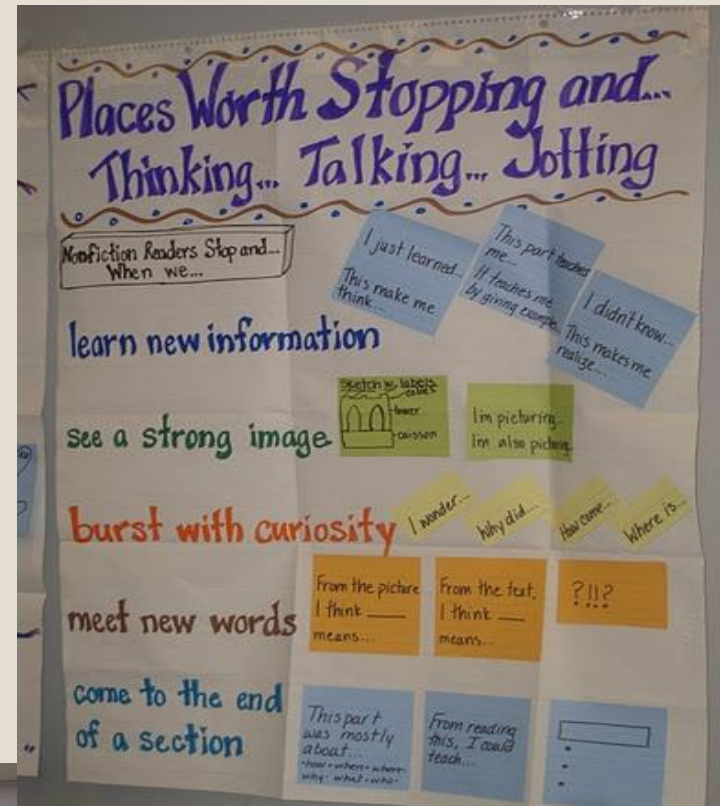 Places Worth Stopping and...
Thinking... Talking... Jotting
Nonfiction Readers Stop and...
When we...
learn new information
I just learned...
This make me
think...
This part teaches
me...
It teaches me
by giving example
I didn't know...
This makes me
realize...
see a strong image
Sketch w/ labels
cables
tower
caisson
I'm picturing...
I'm also picturing
burst with curiosity
I wonder...
Why did...
How come...
Where is...
meet new words
From the picture
I think ___
means...
From the text,
I think ___
means...
?!!?
come to the end
of a section
This part
was mostly
about...
-how-when-where-
why-what-who-
From reading
this, I could
teach...